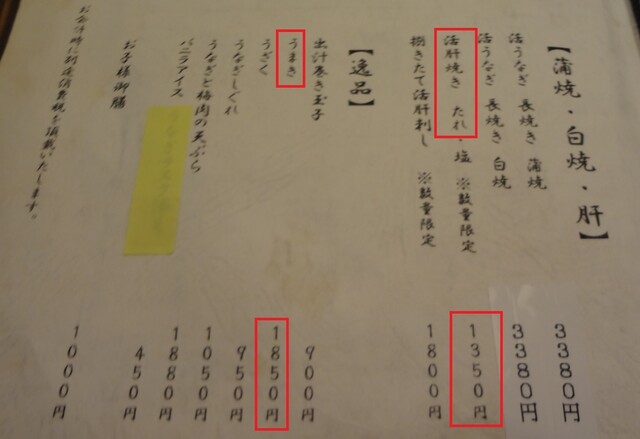 【蒲焼・白焼・肝】
活うなぎ 長焼き 蒲焼 3380円
活うなぎ 長焼き 白焼 3380円
活肝焼き たれ・塩 ※数量限定 1350円
捌きたて活肝刺し ※数量限定 1800円
【逸品】
出汁巻き玉子 900円
うまき 1850円
うざく 950円
うなぎしぐれ 1050円
うなぎと梅肉の天ぷら 1880円
バニラアイス 450円
お子様御膳 1000円
お会計時に別途消費税を頂戴いたします。